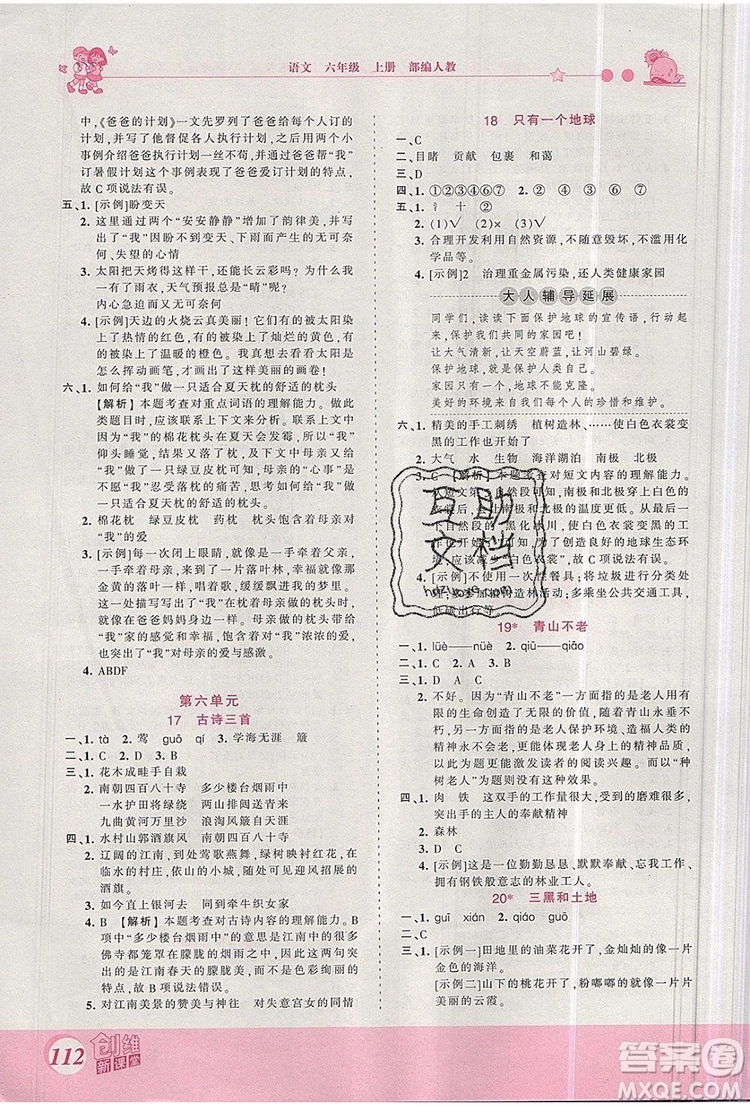 语文 六年级 上册 部编人教
中,《爸爸的计划》一文先罗列了爸爸给每个人订的
计划,并写了他督促各人执行计划,最后以两个小
事例介绍爸爸执行计划一丝不苟,并详写爸爸帮“我”
订暑假计划这个事例表现了爸爸爱订计划的特点,
故 C 项说法有误。
五、1. [示例]盼变天
2. 这里通过两个“安安静静”增加了韵律美,真实地
写出了“我”因盼不到变天、下雨而产生的无可奈
何、失望之情。
3. 太阳把天烤得这样干,还能长云彩吗? 为什么我
一有了雨衣,天气预报就总是“晴”呢?
内心急迫而又无可奈何
4. [示例]天边的火烧云真美丽! 它们有的被太阳染
上了热情的红色,有的被太阳染上了尊贵的金色,
有的被染上了温暖的橙色。我想,那一定是太阳
拿着画笔,画出来的最美丽的画卷!
六、1. 如何给“我”做一只适合夏天枕的舒适的枕头
【解析】本题考查对重点词语的理解能力。做此
类题目时,应该联系上下文来分析。上文中说到,
因为“我”的棉花枕头太软,夏天焐汗,所以“我”只
仰头睡觉,以及下文中说到,母亲在“我”的枕头上
加了一只绿豆皮枕可知,母亲的“心事”是
不愿“我”遭受落枕的痛苦,想给“我”做一只适合
夏天枕的舒适的枕头。
2. 棉花枕 绿豆皮枕 药枕 枕头饱含着母亲对
“我”的爱
3. [示例]每一次闭上眼睛,就仿佛一手牵着父亲,
一手牵着母亲,来到了一片落叶林,踩着柔软的金
黄的树叶,唱着歌,缓缓飘进我的梦里。
写出了在爸爸妈妈的关爱下,“我”酣睡时那种美
好的意境和幸福,饱含着浓浓的父母对“我”的爱
以及“我”对母亲的爱与感激。
4. ABDF
第六单元
17 古诗三首
一、1. tà 2. 莺 guō qí 3. 学海无涯 簸
二、1. C 2. D 3. B
三、1. 花木成畦手自栽
2. 南朝四百八十寺 多少楼台烟雨中
一水护田将绿绕 两山排闼送青来
九曲黄河万里沙 浪淘风簸自天涯
四、1. 水村山郭酒旗风 南朝四百八十寺
2. 辽阔的江南,到处莺歌燕舞,绿树红花相映,
在临水的村庄,依山的城郭,到处都有迎风招展的
酒旗。
3. 直上银河去 同到牵牛织女家
4. B 【解析】本题考查对古诗内容的理解能力。B
项中“多少楼台烟雨中”的意思是江南的很多
佛寺都笼罩在朦胧的烟雨中,这句诗体现出了
江南春天的朦胧美,故 B 项说法有误。
5. 对江南美景的赞美与神往 对失意宫女的同情
18 只有一个地球
一、C
二、目睹 贡献 包裹 和蔼
三、D
四、1. ①②③④⑤ 2. ②④
五、1. 氵 十 ②
2. (1)√ (2)× (3)√
3. 合理开发利用自然资源,不随意毁坏,不滥用化
学品等。
4. [示例]2 治理重金属污染,还人类健康家园
大人辅导延展
同学们,读读下面保护地球的宣传语,行动
起来,保护我们共同的家园吧!
让大气清新,让天空蔚蓝,让河山碧绿。
保护地球,就是保护人类自己。
家园只有一个,地球不能克隆。
美好的环境来自我们每个人的珍惜和维护。
六、1. 精美的手工刺绣 植树造林……使白色衣裳变
黑的工作也开始了
2. 大气 水 生物 海洋湖泊 南极 北极
4. [示例]不使用一次性餐具;将垃圾进行分类投
放;多参加植树造林活动;多乘坐公共交通工具,
低碳出行等。
19* 青山不老
一、1. lüè——nüè 2. qiū——qiǎo
二、1. C 2. A 3. D
三、1. ③ ① ②
2. 不好。因为“青山不老”一方面指的是老人用有
限的生命创造了无限的价值,随着青山永垂不
朽,另一方面指的是老人保护环境、造福人类的
精神如青山般不老,突出老人身上的精神品质,
同时更能激发读者的阅读兴趣。而以“种
树老人”为题则没有这种效果。
四、1. 肉 铁 这双手的工作量很大,受到的磨难很多,
突出手的主人的奉献精神
2. 森林
3. [示例]这是一位勤勤恳恳、默默奉献、意志坚定、
拥有钢铁般意志的林业工人。
20* 三黑和土地
一、1. guī xián 2. qiáo guō
二、1. C 2. A
三、1. [示例一]田地里的油菜花开了,金灿灿的像一片
金色的海洋。
[示例二]山上的桃花开了,粉嘟嘟的就像一片片
美丽的云霞。
互助文档
112
创维新课堂
答案圈
MXQE.COM